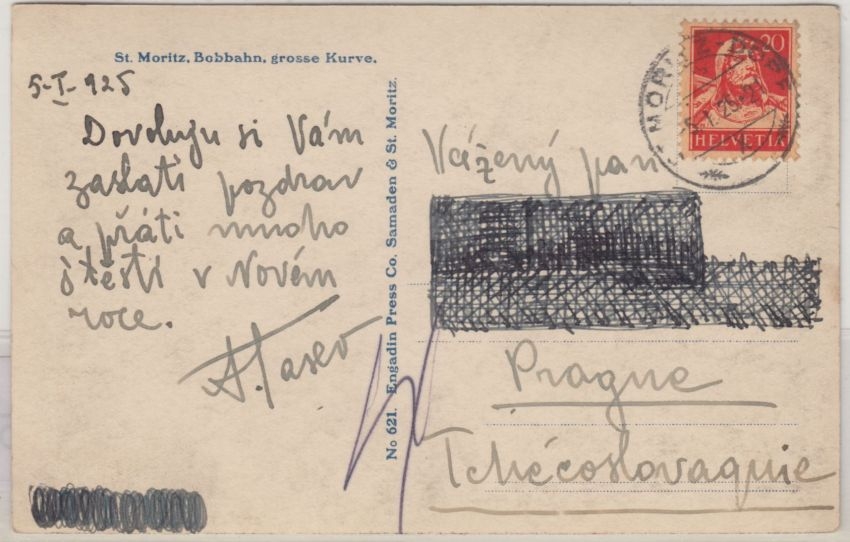 St. Moritz, Bobbahn, grosse Kurve.
5-I-925
Dovoluju si Vám
zaslati pozdrav
a přáti mnoho
štěstí v Novém
roce.
No 621. Engadin Press Co. Samaden & St. Moritz.
20
HELVETIA
Vážený pan
Prague
Tchécoslovaquie